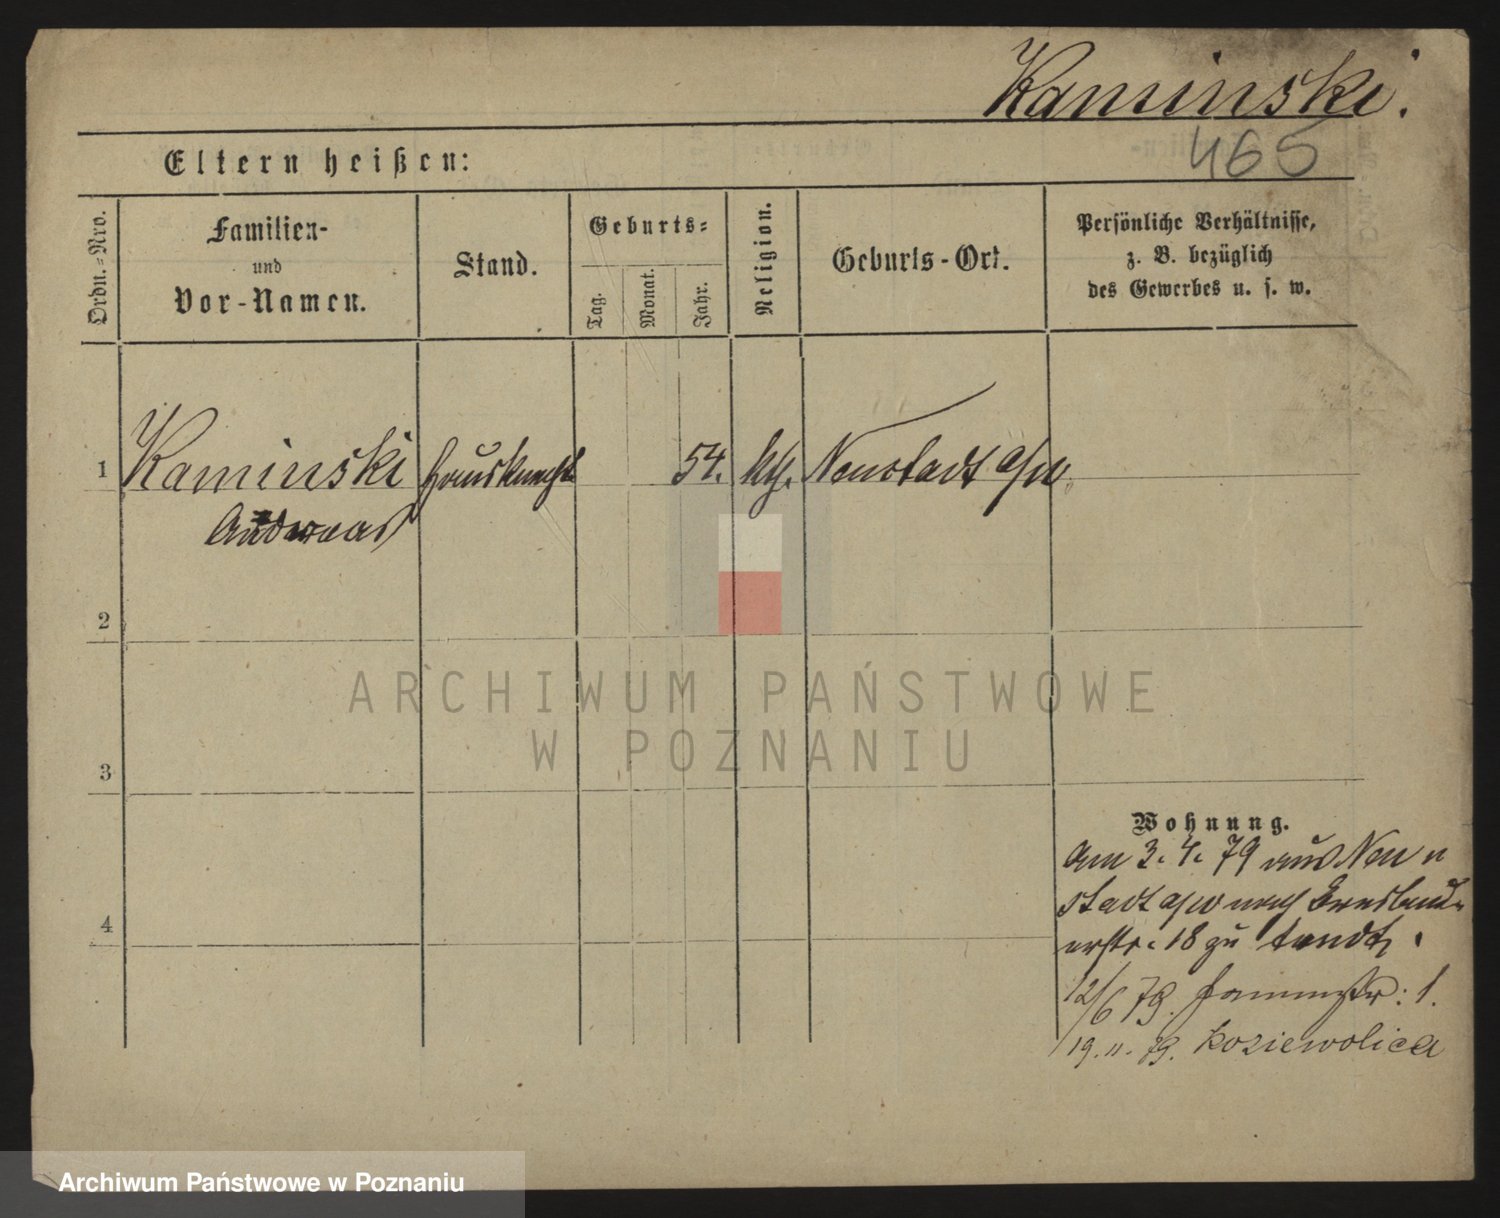 Kaminski.
465
Eltern heißen:
Ordn.=Nro.
Familien-
und
Vor-Namen.
Stand.
Geburts=
Tag.
Monat.
Jahr.
Religion.
Geburts-Ort.
Persönliche Verhältnisse,
z. B. bezüglich
des Gewerbes u. s. w.
1 Kaminski Hausknecht 54. kth. Neustadt a/w
Andreas
2
3
4
ARCHIWUM PAŃSTWOWE
W POZNANIU
Wohnung.
Am 3. 4. 79 aus Neu
stadt a/w nach Breslau
erstr. 18 zu
12/6 79. 1.
19. 11. 79. Koziewolica
Archiwum Państwowe w Poznaniu